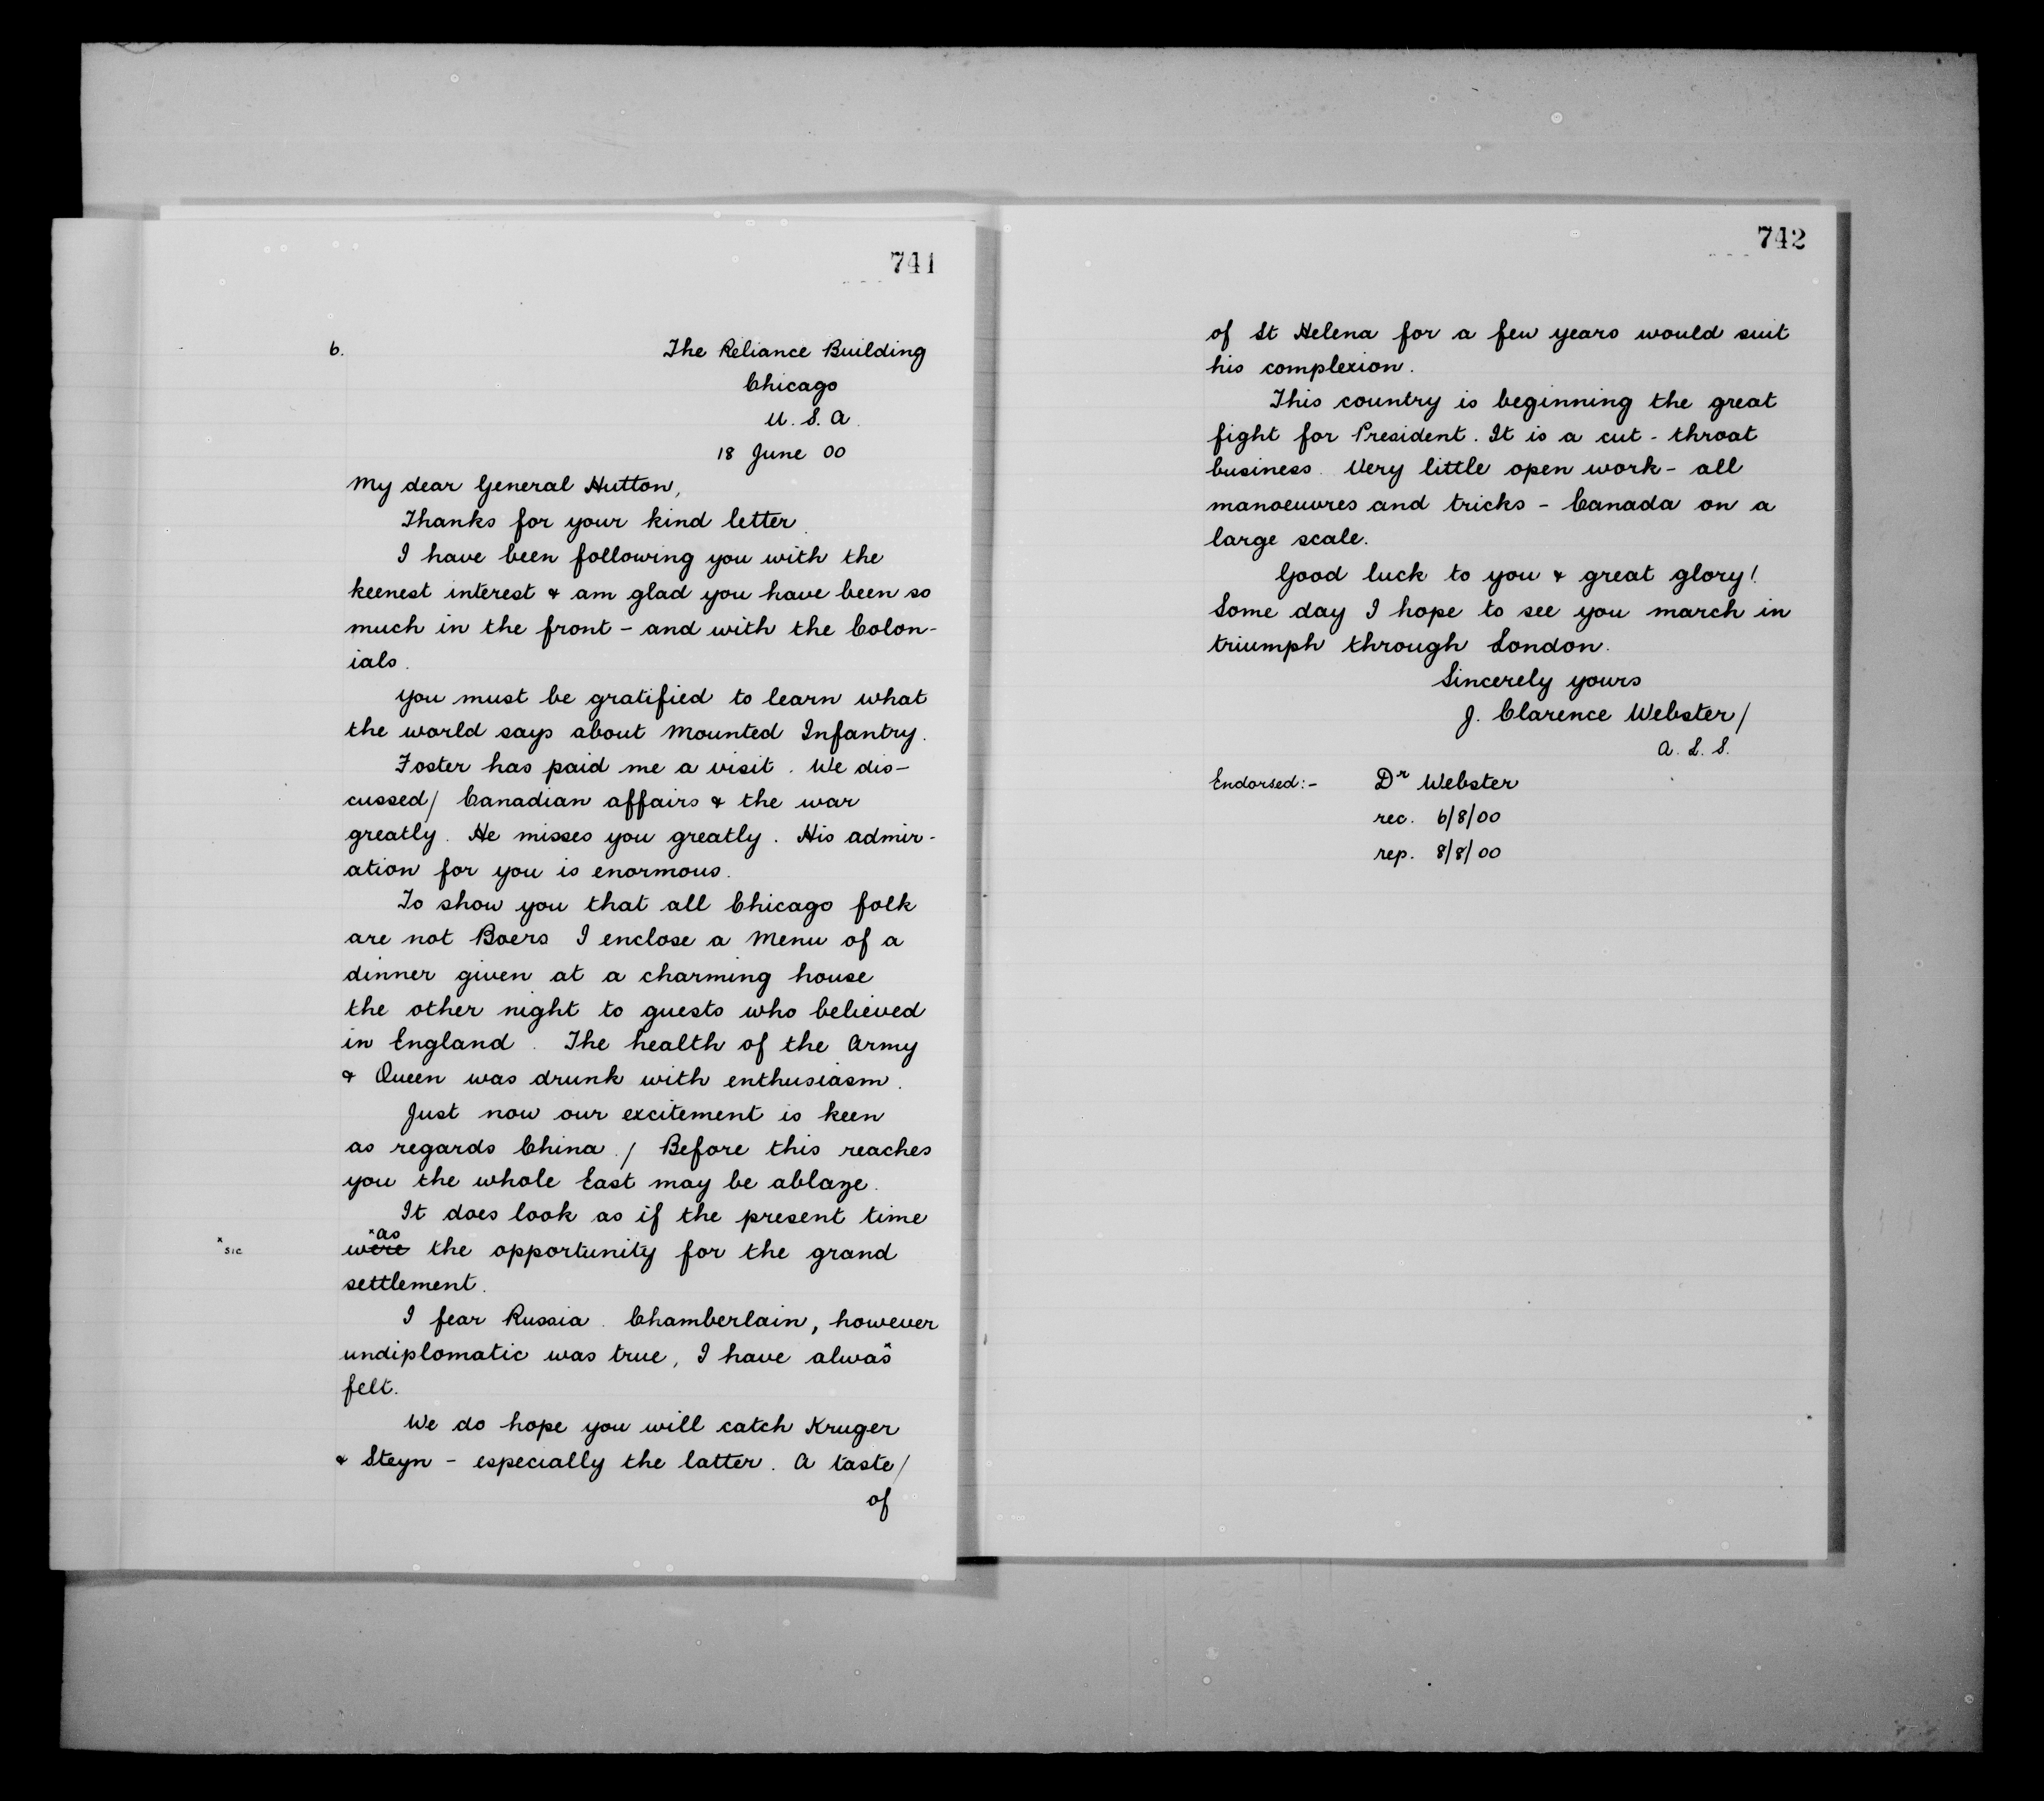 741
6.
The Reliance Building
Chicago
U. S. A.
18 June 00
My dear General Hutton,
Thanks for your kind letter.
I have been following you with the
keenest interest & am glad you have been so
much in the front - and with the Colon-
ials.
You must be gratified to learn what
the world says about Mounted Infantry.
Foster has paid me a visit. We dis-
cussed/ Canadian affairs & the war
greatly. He misses you greatly. His admir-
ation for you is enormous.
To show you that all Chicago folk
are not Boers I enclose a Menu of a
dinner given at a charming house
the other night to guests who believed
in England. The health of the Army
& Queen was drunk with enthusiasm.
Just now our excitement is keen
as regards China./ Before this reaches
you the whole East may be ablaze.
It does look as if the present time
xas
x sic were the opportunity for the grand
settlement.
I fear Russia. Chamberlain, however
undiplomatic was true, I have alwas x
felt.
We do hope you will catch Kruger
& Steyn - especially the latter. A taste/
of
742
of St Helena for a few years would suit
his complexion.
This country is beginning the great
fight for President. It is a cut-throat
business. Very little open work - all
manoeuvres and tricks - Canada on a
large scale.
Good luck to you & great glory!
Some day I hope to see you march in
triumph through London.
Sincerely yours
J. Clarence Webster/
A. L. S.
Endorsed:- Dr Webster
rec. 6/8/00
rep. 8/8/00